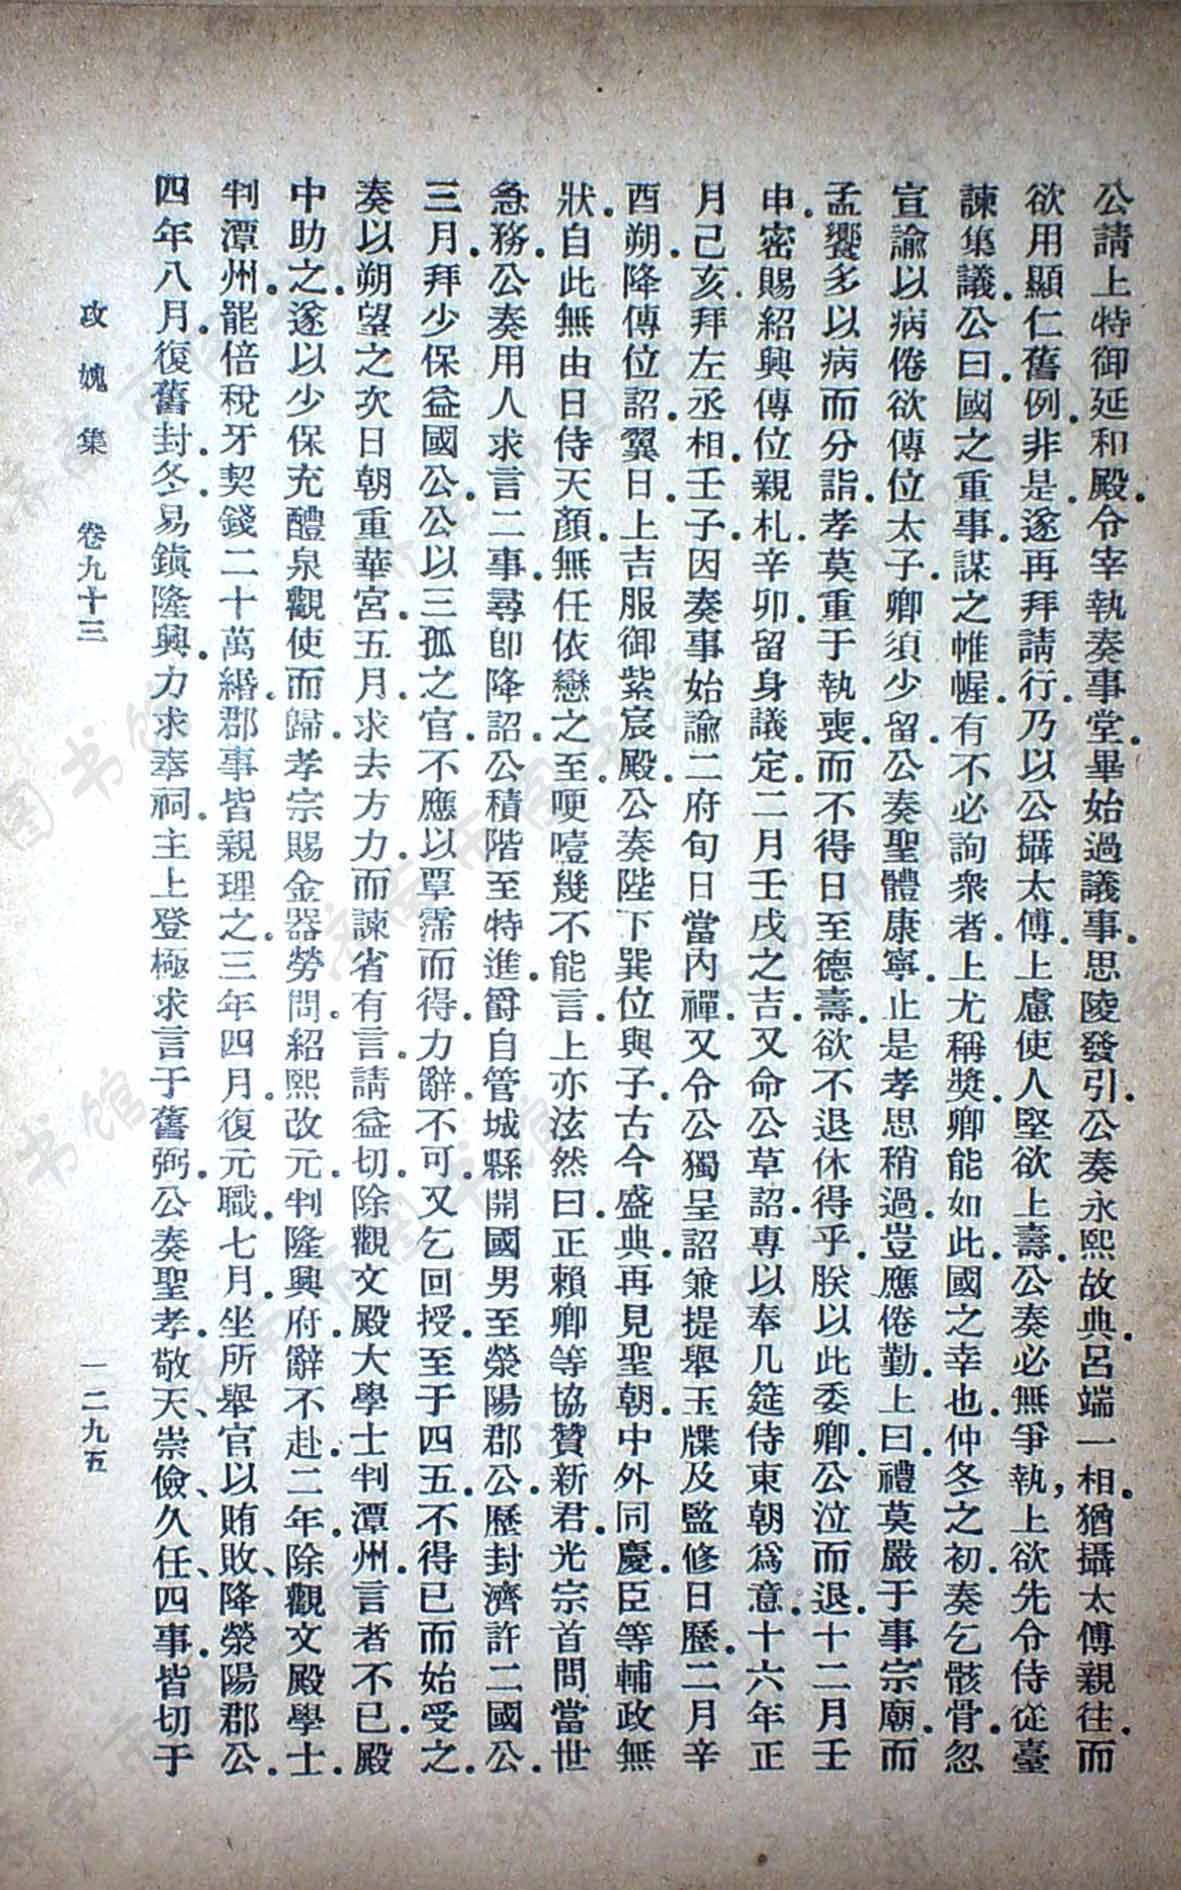 公請上特御延和殿。令宰執奏事堂。畢始過議事。思陵發引。公奏永熙故典。呂端一相。猶攝太傅親往。而
欲用顯仁舊例。非是。遂再拜請行。乃以公攝太傅。上慮使人堅欲上壽。公奏必無爭執，上欲先令侍從臺
諫集議。公曰。國之重事。謀之帷幄。有不必詢衆者。上尤稱獎。卿能如此。國之幸也。仲冬之初。奏乞骸骨。忽
宣諭以病倦欲傳位太子。卿須少留。公奏聖體康寧。止是孝思稍過。豈應倦勤。上曰。禮莫嚴于事宗廟。而
孟饗多以病而分詣。孝莫重于執喪。而不得日至德壽。欲不退休得乎。朕以此委卿。公泣而退。十二月壬
申。密賜紹興傳位親札。辛卯。留身議定。二月壬戌之吉。又命公草詔。專以奉几筵侍東朝爲意。十六年正
月己亥。拜左丞相。壬子。因奏事始諭二府。旬日當內禪。又令公獨呈詔。兼提舉玉牒及監修日歷。二月辛
酉朔。降傳位詔。翼日。上吉服御紫宸殿。公奏陛下巽位與子。古今盛典。再見聖朝。中外同慶。臣等輔政無
狀。自此無由日侍天顏。無任依戀之至。哽噎幾不能言。上亦泫然曰。正賴卿等協贊新君。光宗首問當世
急務。公奏用人求言二事。尋卽降詔。公積階至特進。爵自管城縣開國男至滎陽郡公。歷封濟許二國公。
三月。拜少保益國公。公以三孤之官。不應以覃霈而得。力辭不可。又乞回授。至于四五。不得已而始受之。
奏以朔望之次日朝重華宮。五月。求去方力。而諫省有言。請益切。除觀文殿大學士判潭州。言者不已。殿
中助之。遂以少保充醴泉觀使而歸。孝宗賜金器勞問。紹熙改元。判隆興府。辭不赴。二年。除觀文殿學士。
判潭州。罷倍稅牙契錢二十萬緡。郡事皆親理之。三年四月。復元職。七月。坐所舉官以賄敗、降滎陽郡公。
四年八月。復舊封。冬。易鎮隆興。力求奉祠。主上登極。求言于舊弼。公奏聖孝。敬天、崇儉、久任、四事。皆切于
攻媿集 卷九十三 一二九五